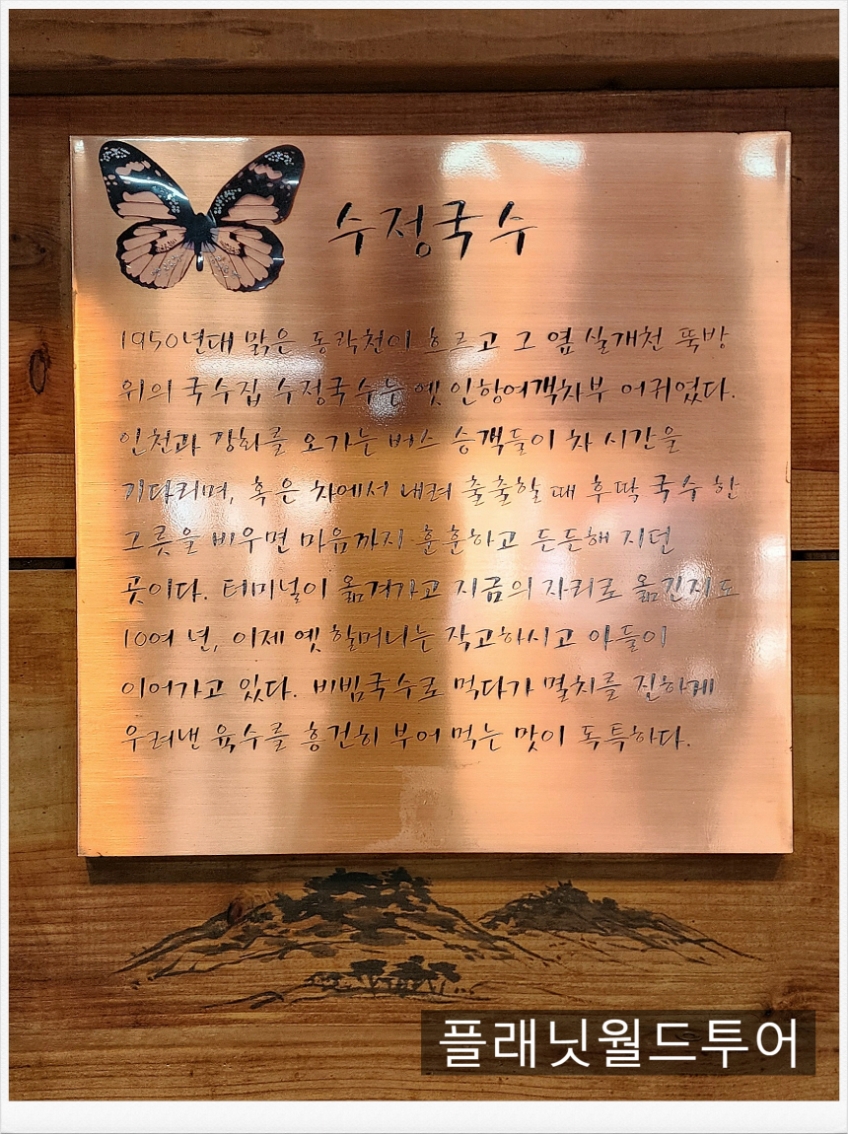 수정국수
1950년대 맑은 동락천이 흐르고 그 옆 실개천 뚝방
위의 국수집 수정국수는 옛 인항여객차부 어귀였다.
인천과 강화를 오가는 버스 승객들이 차 시간을
기다리며, 혹은 차에서 내려 출출할 때 후딱 국수 한
그릇을 비우면 마음까지 훈훈하고 든든해 지던
곳이다. 터미널이 옮겨가고 지금의 자리로 옮긴지도
10여 년, 이제 옛 할머니는 작고하시고 아들이
이어가고 있다. 비빔국수로 먹다가 멸치를 진하게
우려낸 육수를 흥건히 부어 먹는 맛이 독특하다.
플래닛월드투어